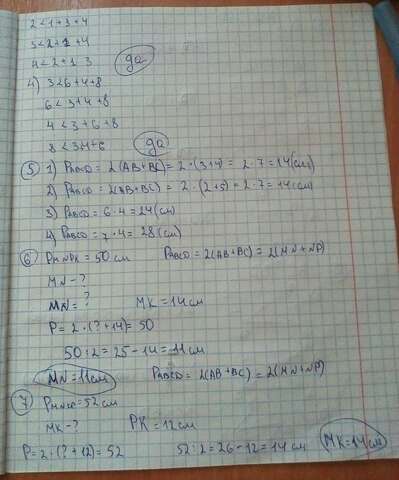 2 < 1 + 3 + 4
3 < 2 + 1 + 4
4 < 2 + 1 3 да
4) 3 < 6 + 4 + 8
6 < 3 + 4 + 8
4 < 3 + 6 + 8
8 < 3 + 4 + 6 да
5 1) PABCD = 2(AB+BC) = 2 · (3+4) = 2 · 7 = 14 (см)
2) PABCD = 2(AB+BC) = 2 · (2+5) = 2 · 7 = 14 (см)
3) PABCD = 6 · 4 = 24 (см)
4) PABCD = 7 · 4 = 28 (см)
6 PMNPK = 50 см PABCD = 2(AB+BC) = 2(MN+NP)
MN - ?
MN = ? MK = 14 см
P = 2 · (? + 14) = 50
50 : 2 = 25 - 14 = 11 см
MN = 11 см PABCD = 2(AB+BC) = 2(MN+NP)
7 = 52 см
MK - ? PK = 12 см
P = 2 · (? + 12) = 52 52 : 2 = 26 - 12 = 14 см MK = 14 см